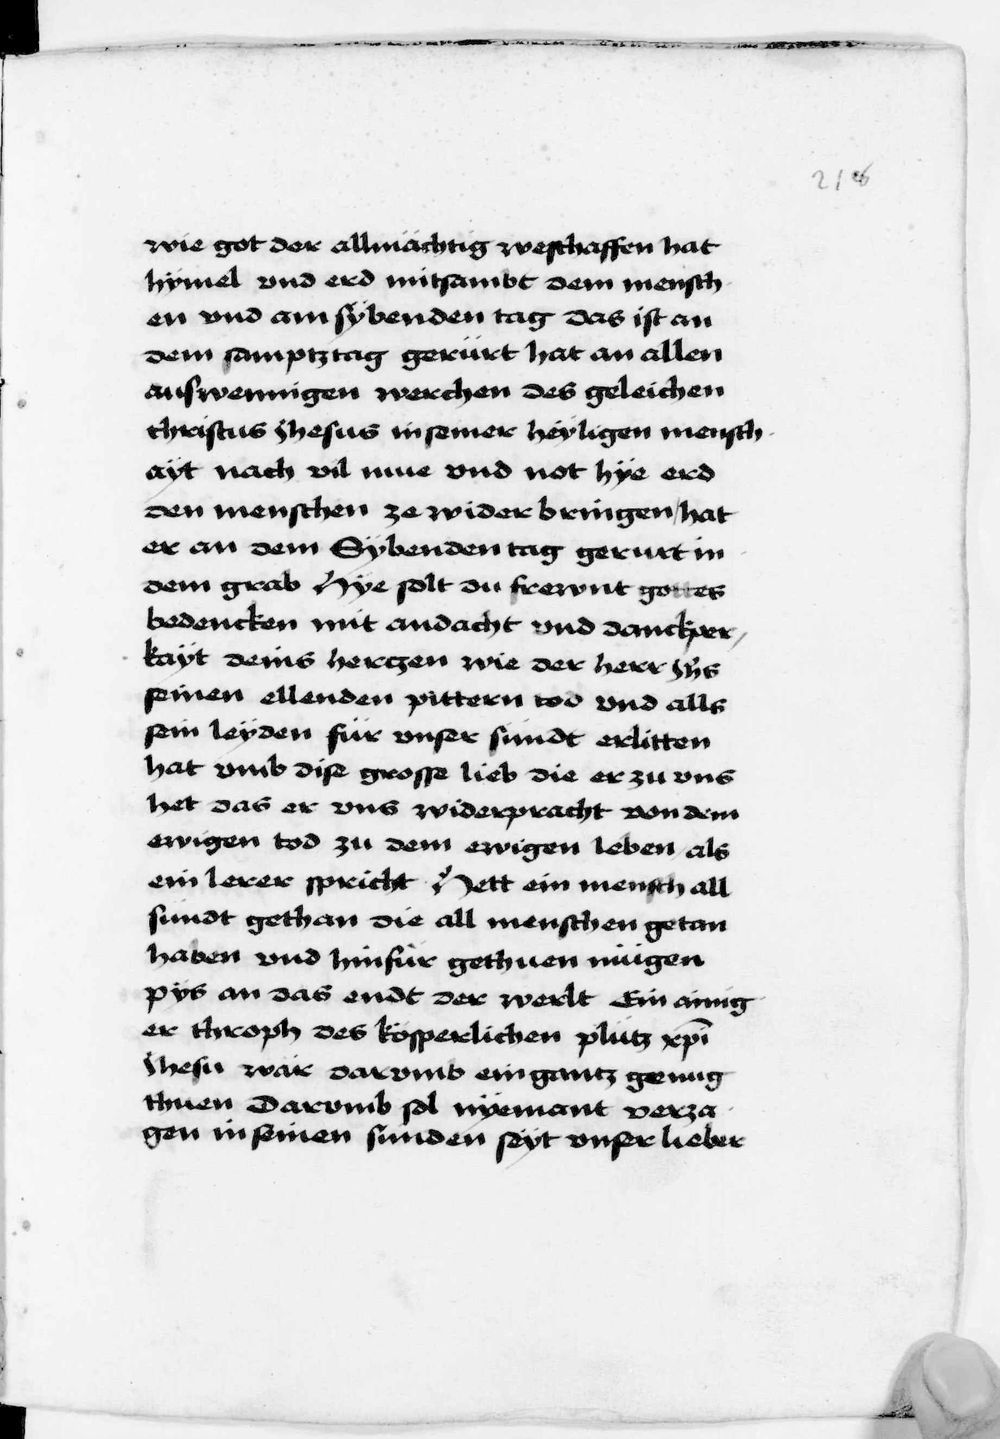 218
wie got der allmächtig weschaffen hat
hymel vnd erd mitsambt dem mensch
en vnd am sÿbenden tag das ist an
dem samptztag gerürt hat an allen
auswennigen werchen des geleichen
christus Jhesus in seiner heÿligen mensch
aÿt nach vil mue vnd not hÿe erd
den menschen ze wider bringen / hat
er an dem Sÿbenden tag gerurt in
dem grab Hÿe solt du frewnt gottes
bedencken mit andacht vnd danckper /
kaÿt deins herczen wie der herr Jhs
seinen ellenden pittern tod vnd alls
sein leÿden für vnser sündt erlitten
hat vmb dise grosse lieb die er zu vns
het das er vns widerpracht von dem
ewigen tod zu dem ewigen leben als
ein lerer spricht Hett ein mensch all
sündt gethan die all menschen getan
haben vnd hinfür gethuen mügen
pÿs an das endt der werlt Ein ainig
er throph des kösperlichen plutz xpī
Jhesu wär darvmb ein gantz genug
thuen Darvmb sol nÿemant verza
gen in seinen sunden seÿt vnser lieber